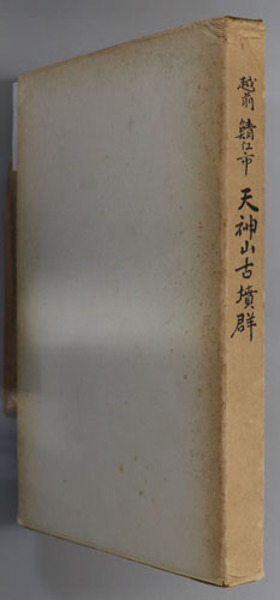 越前 鯖江市 天神山古墳群